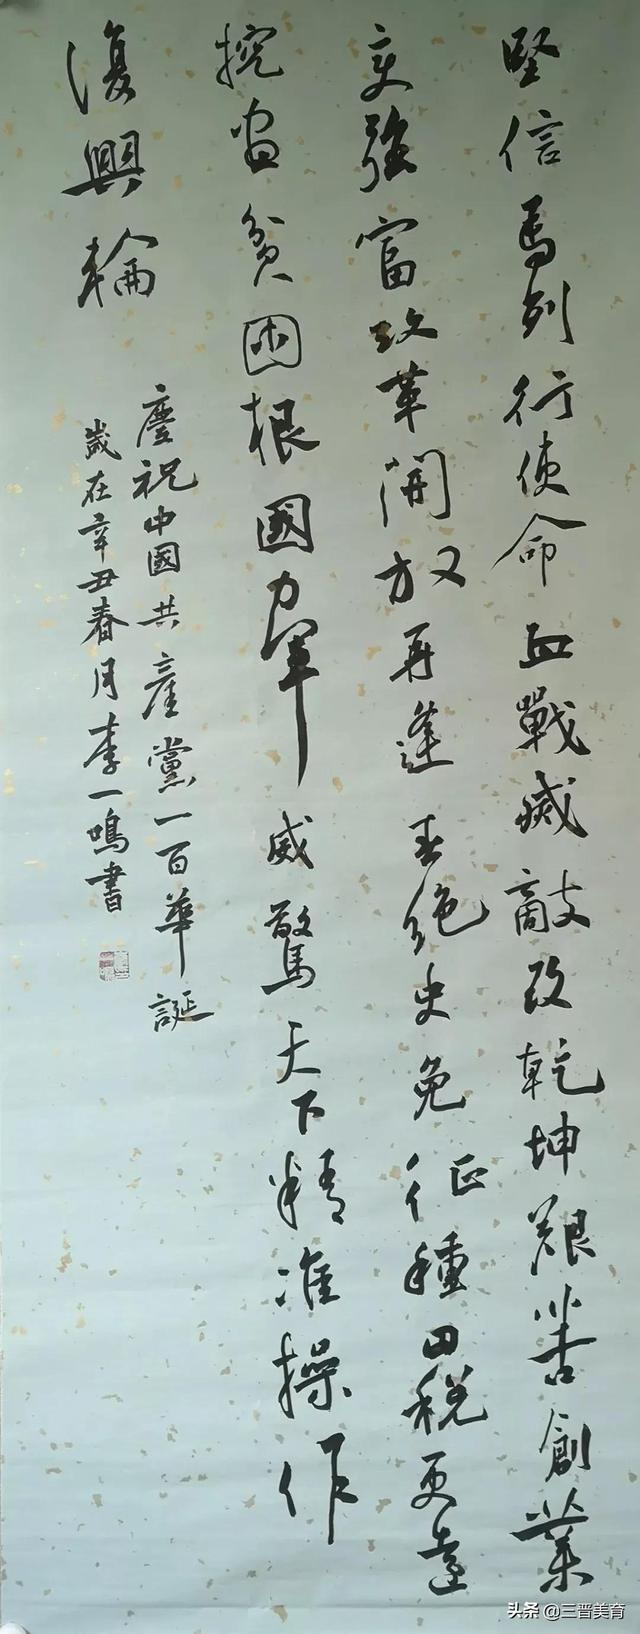 堅信馬列行使命血戰滅敵改乾坤艱苦創業
变強富改革開放再逢春绝史免征種田税更
挖盡貧困根國力軍威驚天下精准操作
復興輪
慶祝中國共產黨一百華誕
歲在辛丑春月李一鳴書
头条 @三晋美育